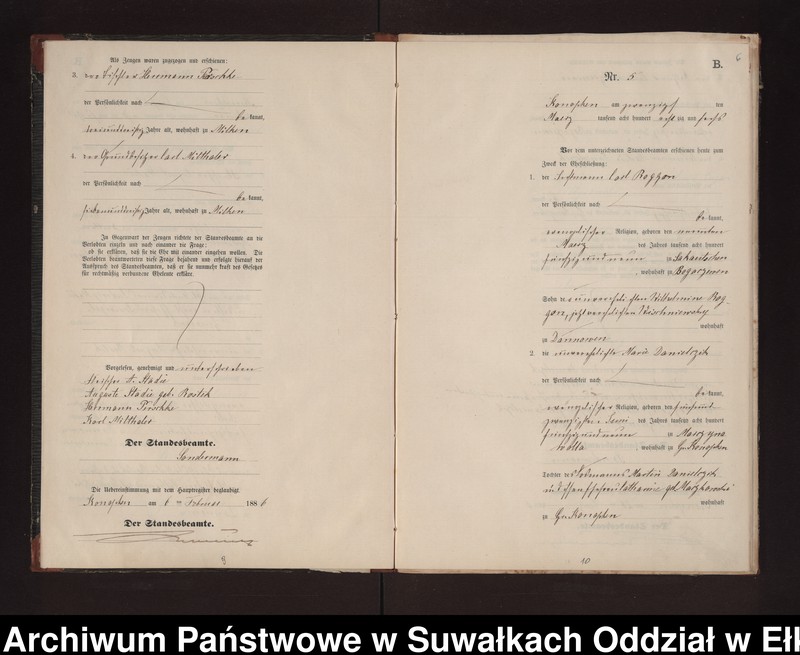 Als Zeugen waren zugezogen und erschienen:
3. der Tischler Hermann
der Persönlichkeit nach
be kannt,
Jahre alt, wohnhaft zu Milken
4. der Grundbesitzer Carl Milthaler
der Persönlichkeit nach
be kannt,
siebenunddreißig Jahre alt, wohnhaft zu Milken
In Gegenwart der Zeugen richtete der Standesbeamte an die
Verlobten einzeln und nach einander die Frage:
ob sie erklären, daß sie die Ehe mit einander eingehen wollen. Die
Verlobten beantworteten diese Frage bejahend und erfolgte hierauf der
Ausspruch des Standesbeamten, daß er sie nunmehr kraft des Gesetzes
für rechtmäßig verbundene Eheleute erkläre.
Vorgelesen, genehmigt und unterschrieben
Stadie
Auguste Stadie geb.
Hermann
Karl Milthaler
Der Standesbeamte.
Sondermann
Die Uebereinstimmung mit dem Hauptregister beglaubigt
Konopken am 6 ten Februar 1886
Der Standesbeamte.
9
6
B.
Nr. 5
Konopken am zwanzigsten
Maerz tausend acht hundert achtzig und sechs
Vor dem unterzeichneten Standesbeamten erschienen heute zum
Zweck der Eheschließung:
1. der Carl Roggon
der Persönlichkeit nach
be kannt,
evangelischer Religion, geboren den neunten
Maerz des Jahres tausend acht hundert
fünfzig und neun zu
, wohnhaft zu Bogaczewen
Sohn der unverehelichten Wilhelmine Rog-
gon, jetzt verehelichten
wohnhaft
zu Dannowen
2. die unverehelichte Marie Danielczik
der Persönlichkeit nach
be kannt,
evangelischer Religion, geboren den fünfund-
zwanzigsten Juni des Jahres tausend acht hundert
fünfzig und neun zu
wolla, wohnhaft zu Gr. Konopken
Tochter des Losmanns Martin Danielczik
und dessen Ehefrau Catharine geb.
wohnhaft
zu Gr. Konopken
10
Archiwum Państwowe w Suwałkach Oddział w Ełk